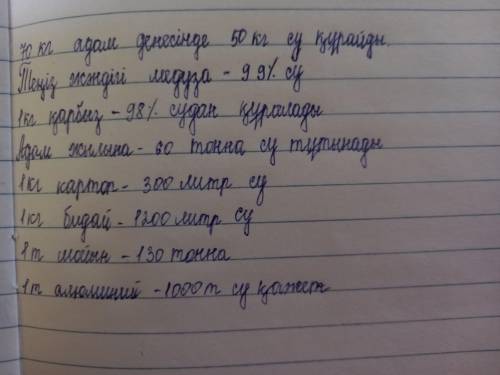 70 кг адам денесінде 50 кг су құрайды.
Теңіз жәндігі медуза - 99% су
1кг қарбыз - 98% судан құралады
Адам жылына - 60 тонна су тұтынады
1кг картоп - 300 литр су
1кг бидай - 1200 литр су
1т мойын - 130 тонна
1т алюминий - 1000т су қажет